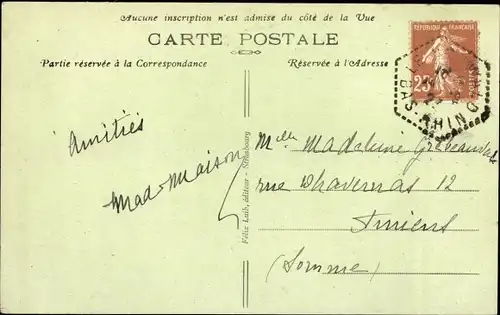 Aucune inscription n'est admise du côté de la Vue
CARTE POSTALE
Partie réservée à la Correspondance
Réservée à l'Adresse
RÉPUBLIQUE FRANÇAISE
25
POSTES
BAS-RHIN
Amitiés
Mad-Maison
Félix Luib, éditeur - Strasbourg
Melle Madeleine
rue Dhavernas 12
Amiens
(Somme)